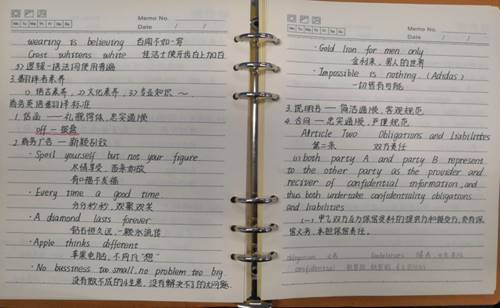 Memo No.
Mo Tu We Th Fr Sa Su
Date / /
wearing is believing 百闻不如一穿
Crest whitens white 佳洁士使牙齿白上加白
3) 逻辑、语法词使用普遍
3. 翻译者素养
1) 语言素养, 2) 文化素养, 3) 专业知识
商务英语翻译标准
1. 信函 —— 礼貌得体, 忠实通顺
off - 报盘
2. 商务广告 — 新颖别致
· Spoil yourself but not your figure
尽情享受, 苗条如故
有口福不发福
· Every time a good time
分分秒秒, 欢聚欢笑
· A diamond lasts forever.
钻石恒久远, 一颗永流传
· Apple thinks different
苹果电脑, 不同凡"想"
· No bussiness too small, no problem too big.
没有做不成的生意, 没有解决不了的大问题.
Memo No.
Mo Tu We Th Fr Sa Su
Date / /
· Gold Iron for men only
金利来, 男人的世界
· Impossible is nothing. (Adidas)
一切皆有可能
3. 说明书 — 简洁通顺, 客观规范
4. 合同 — 忠实通顺, 严谨规范
Article Two Obligations and Liabilities
第二条 双方责任
(1) both party A and party B represent
to the other party as the provider and
reciver of confidential information, and
thus both undertake confidentiality obligations
and liabilities
(一). 甲乙双方互为保密资料的提供方和接受方, 负有保
密义务, 承担保密责任.
obligation 义务 liabilities
confidential